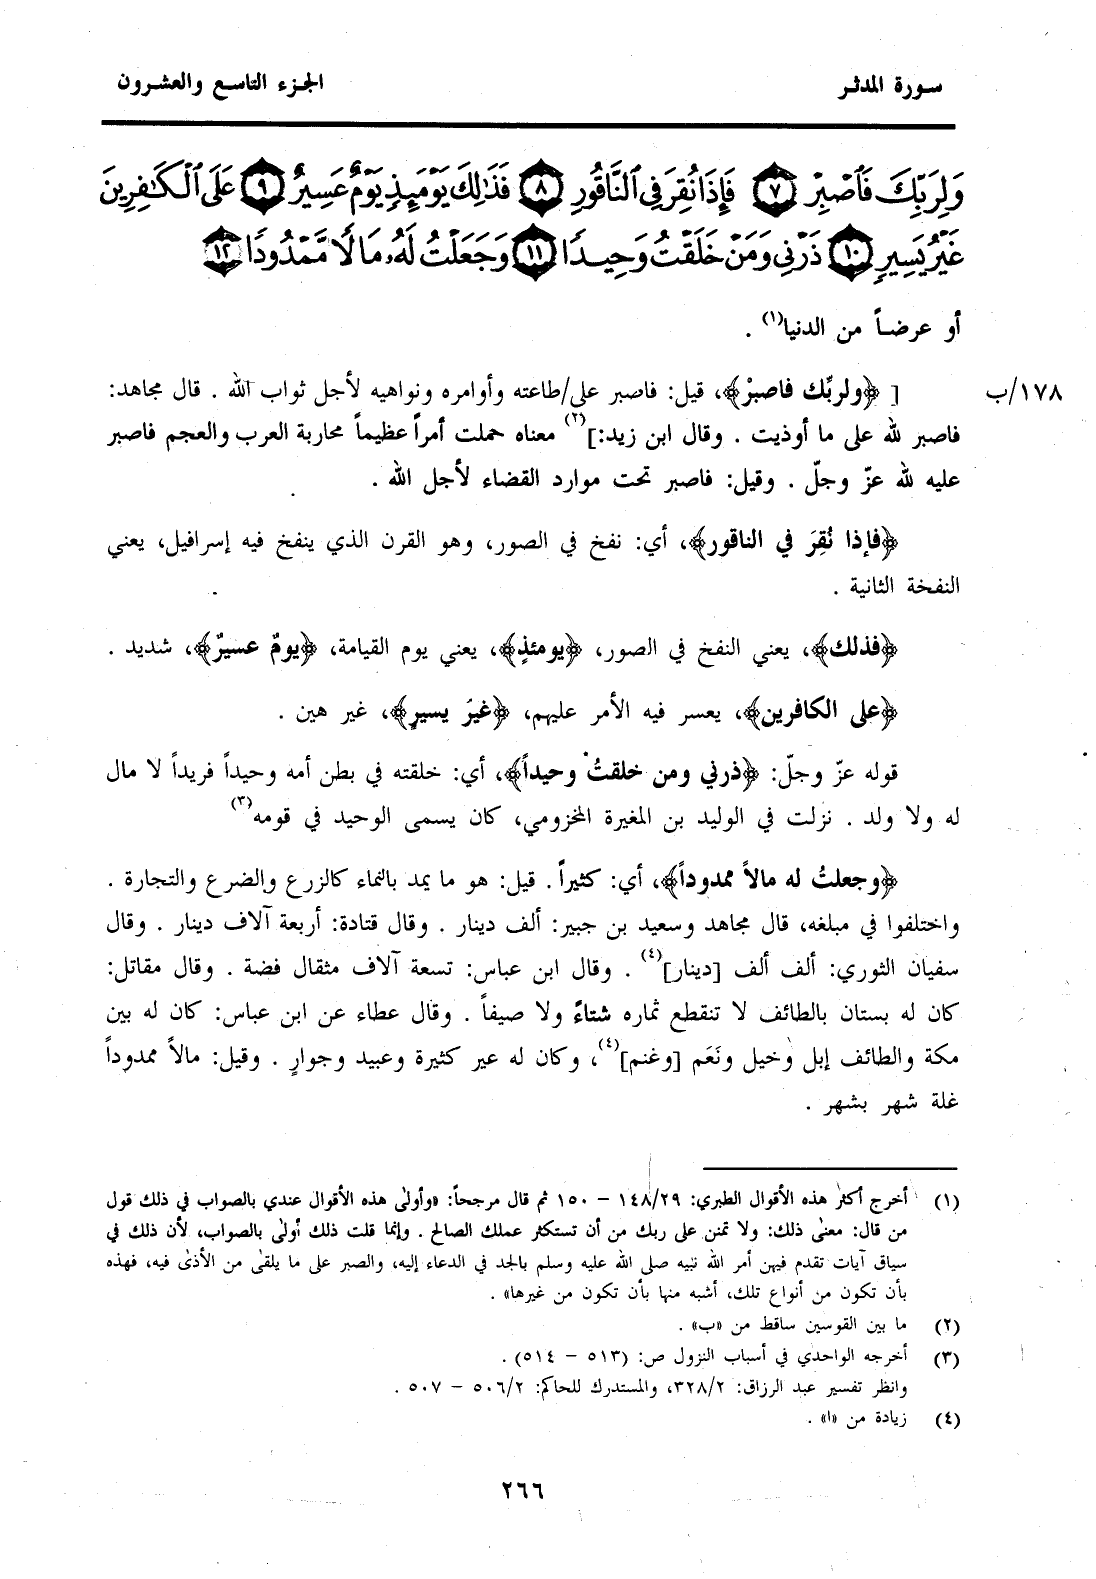 سورة المدثر
الجزء التاسع والعشرون
وَلِرَبِّكَ فَٱصْبِرْ ٧ فَإِذَا نُقِرَ فِى ٱلنَّاقُورِ ٨ فَذَٰلِكَ يَوْمَئِذٍ يَوْمٌ عَسِيرٌ ٩ عَلَى ٱلْكَٰفِرِينَ
غَيْرُ يَسِيرٍ ١٠ ذَرْنِى وَمَنْ خَلَقْتُ وَحِيدًا ١١ وَجَعَلْتُ لَهُۥ مَالًا مَّمْدُودًا ١٢
أو عرضاً من الدنيا(١) .
١٧٨/ب
[ ﴿ولربّك فاصبرْ﴾، قيل: فاصبر على/طاعته وأوامره ونواهيه لأجل ثواب الله . قال مجاهد:
فاصبر لله على ما أوذيت . وقال ابن زيد:](٢) معناه حملت أمراً عظيماً محاربة العرب والعجم فاصبر
عليه لله عزّ وجلّ . وقيل: فاصبر تحت موارد القضاء لأجل الله .
﴿فإذا نُقِرَ في الناقور﴾، أي: نفخ في الصور، وهو القرن الذي ينفخ فيه إسرافيل، يعني
النفخة الثانية .
﴿فذلك﴾، يعني النفخ في الصور، ﴿يومئذٍ﴾، يعني يوم القيامة، ﴿يومٌ عسيرٌ﴾، شديد .
﴿على الكافرين﴾، يعسر فيه الأمر عليهم، ﴿غيرَ يسيرٍ﴾، غير هين .
قوله عزّ وجلّ: ﴿ذرني ومن خلقتُ وحيداً﴾، أي: خلقته في بطن أمه وحيداً فريداً لا مال
له ولا ولد . نزلت في الوليد بن المغيرة المخزومي، كان يسمى الوحيد في قومه(٣)
﴿وجعلتُ له مالاً ممدوداً﴾، أي: كثيراً. قيل: هو ما يمد بالنماء كالزرع والضرع والتجارة .
واختلفوا في مبلغه، قال مجاهد وسعيد بن جبير: ألف دينار . وقال قتادة: أربعة آلاف دينار . وقال
سفيان الثوري: ألف ألف [دينار](٤) . وقال ابن عباس: تسعة آلاف مثقال فضة . وقال مقاتل:
كان له بستان بالطائف لا تنقطع ثماره شتاءً ولا صيفاً . وقال عطاء عن ابن عباس: كان له بين
مكة والطائف إبل وخيل ونَعَم [وغنم](٤)، وكان له عير كثيرة وعبيد وجوارٍ . وقيل: مالاً ممدوداً
غلة شهر بشهر .
(١) أخرج أكثر هذه الأقوال الطبري: ١٤٨/٢٩ – ١٥٠ ثم قال مرجحاً: «وأولى هذه الأقوال عندي بالصواب في ذلك قول
من قال: معنى ذلك: ولا تمنن على ربك من أن تستكثر عملك الصالح . وإنما قلت ذلك أولى بالصواب، لأن ذلك في
سياق آيات تقدم فيهن أمر الله نبيه صلى الله عليه وسلم بالجد في الدعاء إليه، والصبر على ما يلقى من الأذى فيه، فهذه
بأن تكون من أنواع تلك، أشبه منها بأن تكون من غيرها» .
(٢) ما بين القوسين ساقط من «ب» .
(٣) أخرجه الواحدي في أسباب النزول ص: (٥١٣ – ٥١٤) .
وانظر تفسير عبد الرزاق: ٣٢٨/٢، والمستدرك للحاكم: ٥٠٦/٢ – ٥٠٧ .
(٤) زيادة من «ا» .
٢٦٦